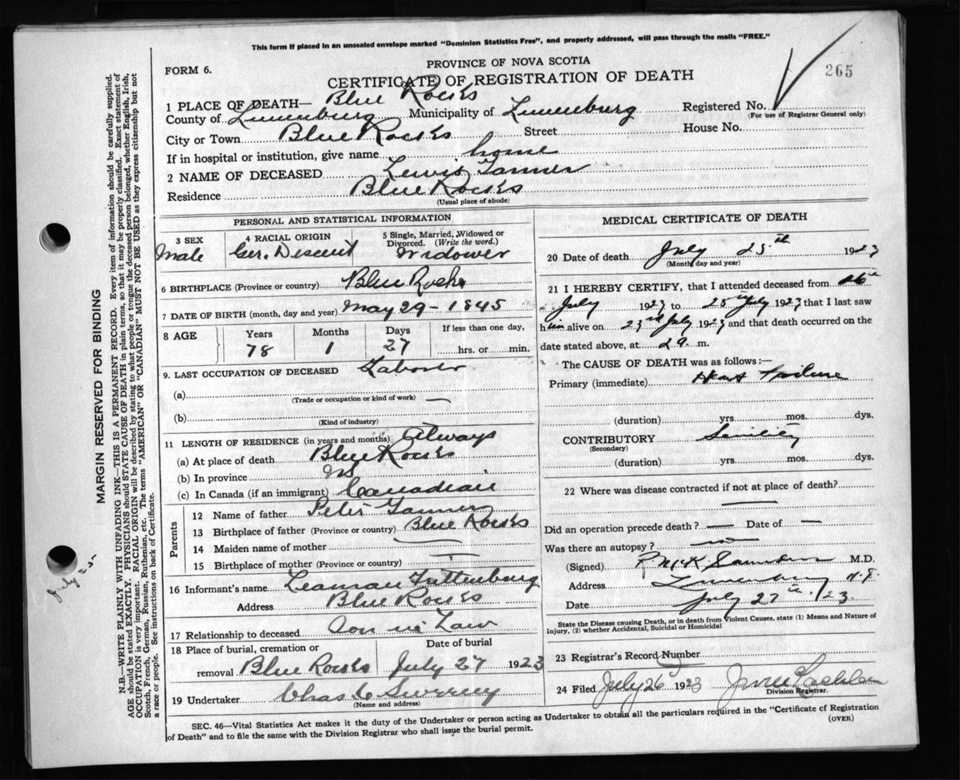 This form if placed in an unsealed envelope marked "Dominion Statistics Free", and properly addressed, will pass through the mails "FREE."
PROVINCE OF NOVA SCOTIA
265
FORM 6.
CERTIFICATE OF REGISTRATION OF DEATH
1 PLACE OF DEATH— Blue Rocks
County of Lunenburg Municipality of Lunenburg Registered No.
(For use of Registrar General only)
City or Town Blue Rocks Street House No.
If in hospital or institution, give name home
2 NAME OF DECEASED Lewis Tanner
Residence Blue Rocks
(Usual place of abode)
PERSONAL AND STATISTICAL INFORMATION
3 SEX 4 RACIAL ORIGIN 5 Single, Married, Widowed or Divorced. (Write the word.)
Male Ger. Descent Widower
6 BIRTHPLACE (Province or country) Blue Rocks
7 DATE OF BIRTH (month, day and year) May 29 - 1845
8 AGE Years Months Days If less than one day,
78 1 27 hrs. or min.
9. LAST OCCUPATION OF DECEASED Laborer
(a) —
(Trade or occupation or kind of work)
(b)
(Kind of industry)
11 LENGTH OF RESIDENCE (in years and months) Always
(a) At place of death Blue Rocks
(b) In province NS
(c) In Canada (if an immigrant) Canadian
Parents
12 Name of father Peter Tanner
13 Birthplace of father (Province or country) Blue Rocks
14 Maiden name of mother —
15 Birthplace of mother (Province or country) —
16 Informant's name Leaman Tuttenburg
Address Blue Rocks
17 Relationship to deceased Son in Law
18 Place of burial, cremation or removal Date of burial
Blue Rocks July 27 1923
19 Undertaker Chas
(Name and address)
MEDICAL CERTIFICATE OF DEATH
20 Date of death July 25th 1923
(Month, day and year)
21 I HEREBY CERTIFY, that I attended deceased from
July 1923 to 25th July 1923 that I last saw
him alive on 23rd July 1923 and that death occurred on the
date stated above, at m.
The CAUSE OF DEATH was as follows:—
Primary (immediate) Heart Failure
(duration) yrs. mos. dys.
CONTRIBUTORY Senility
(Secondary)
(duration) yrs. mos. dys.
22 Where was disease contracted if not at place of death?
—
Did an operation precede death? — Date of —
Was there an autopsy? no
(Signed) M.D.
Address Lunenburg N.S.
Date July 27th /23
State the Disease causing Death, or in death from Violent Causes, state (1) Means and Nature of
Injury, (2) whether Accidental, Suicidal or Homicidal
23 Registrar's Record Number
24 Filed July 26 1923
Division Registrar.
SEC. 46—Vital Statistics Act makes it the duty of the Undertaker or person acting as Undertaker to obtain all the particulars required in the "Certificate of Registration
of Death" and to file the same with the Division Registrar who shall issue the burial permit.
(OVER)
MARGIN RESERVED FOR BINDING
N.B.—WRITE PLAINLY WITH UNFADING INK—THIS IS A PERMANENT RECORD. Every item of information should be carefully supplied.
AGE should be stated EXACTLY. PHYSICIANS should STATE CAUSE OF DEATH in plain terms, so that it may be properly classified. Exact statement of
OCCUPATION is very important. RACIAL ORIGIN will be described by stating to what people or tongue the deceased person belonged, whether English, Irish,
Scotch, French, German, Russian, Ruthenian, etc. The terms "AMERICAN" OR "CANADIAN" MUST NOT BE USED as they express citizenship but not
a race or people. See instructions on back of Certificate.
July 25